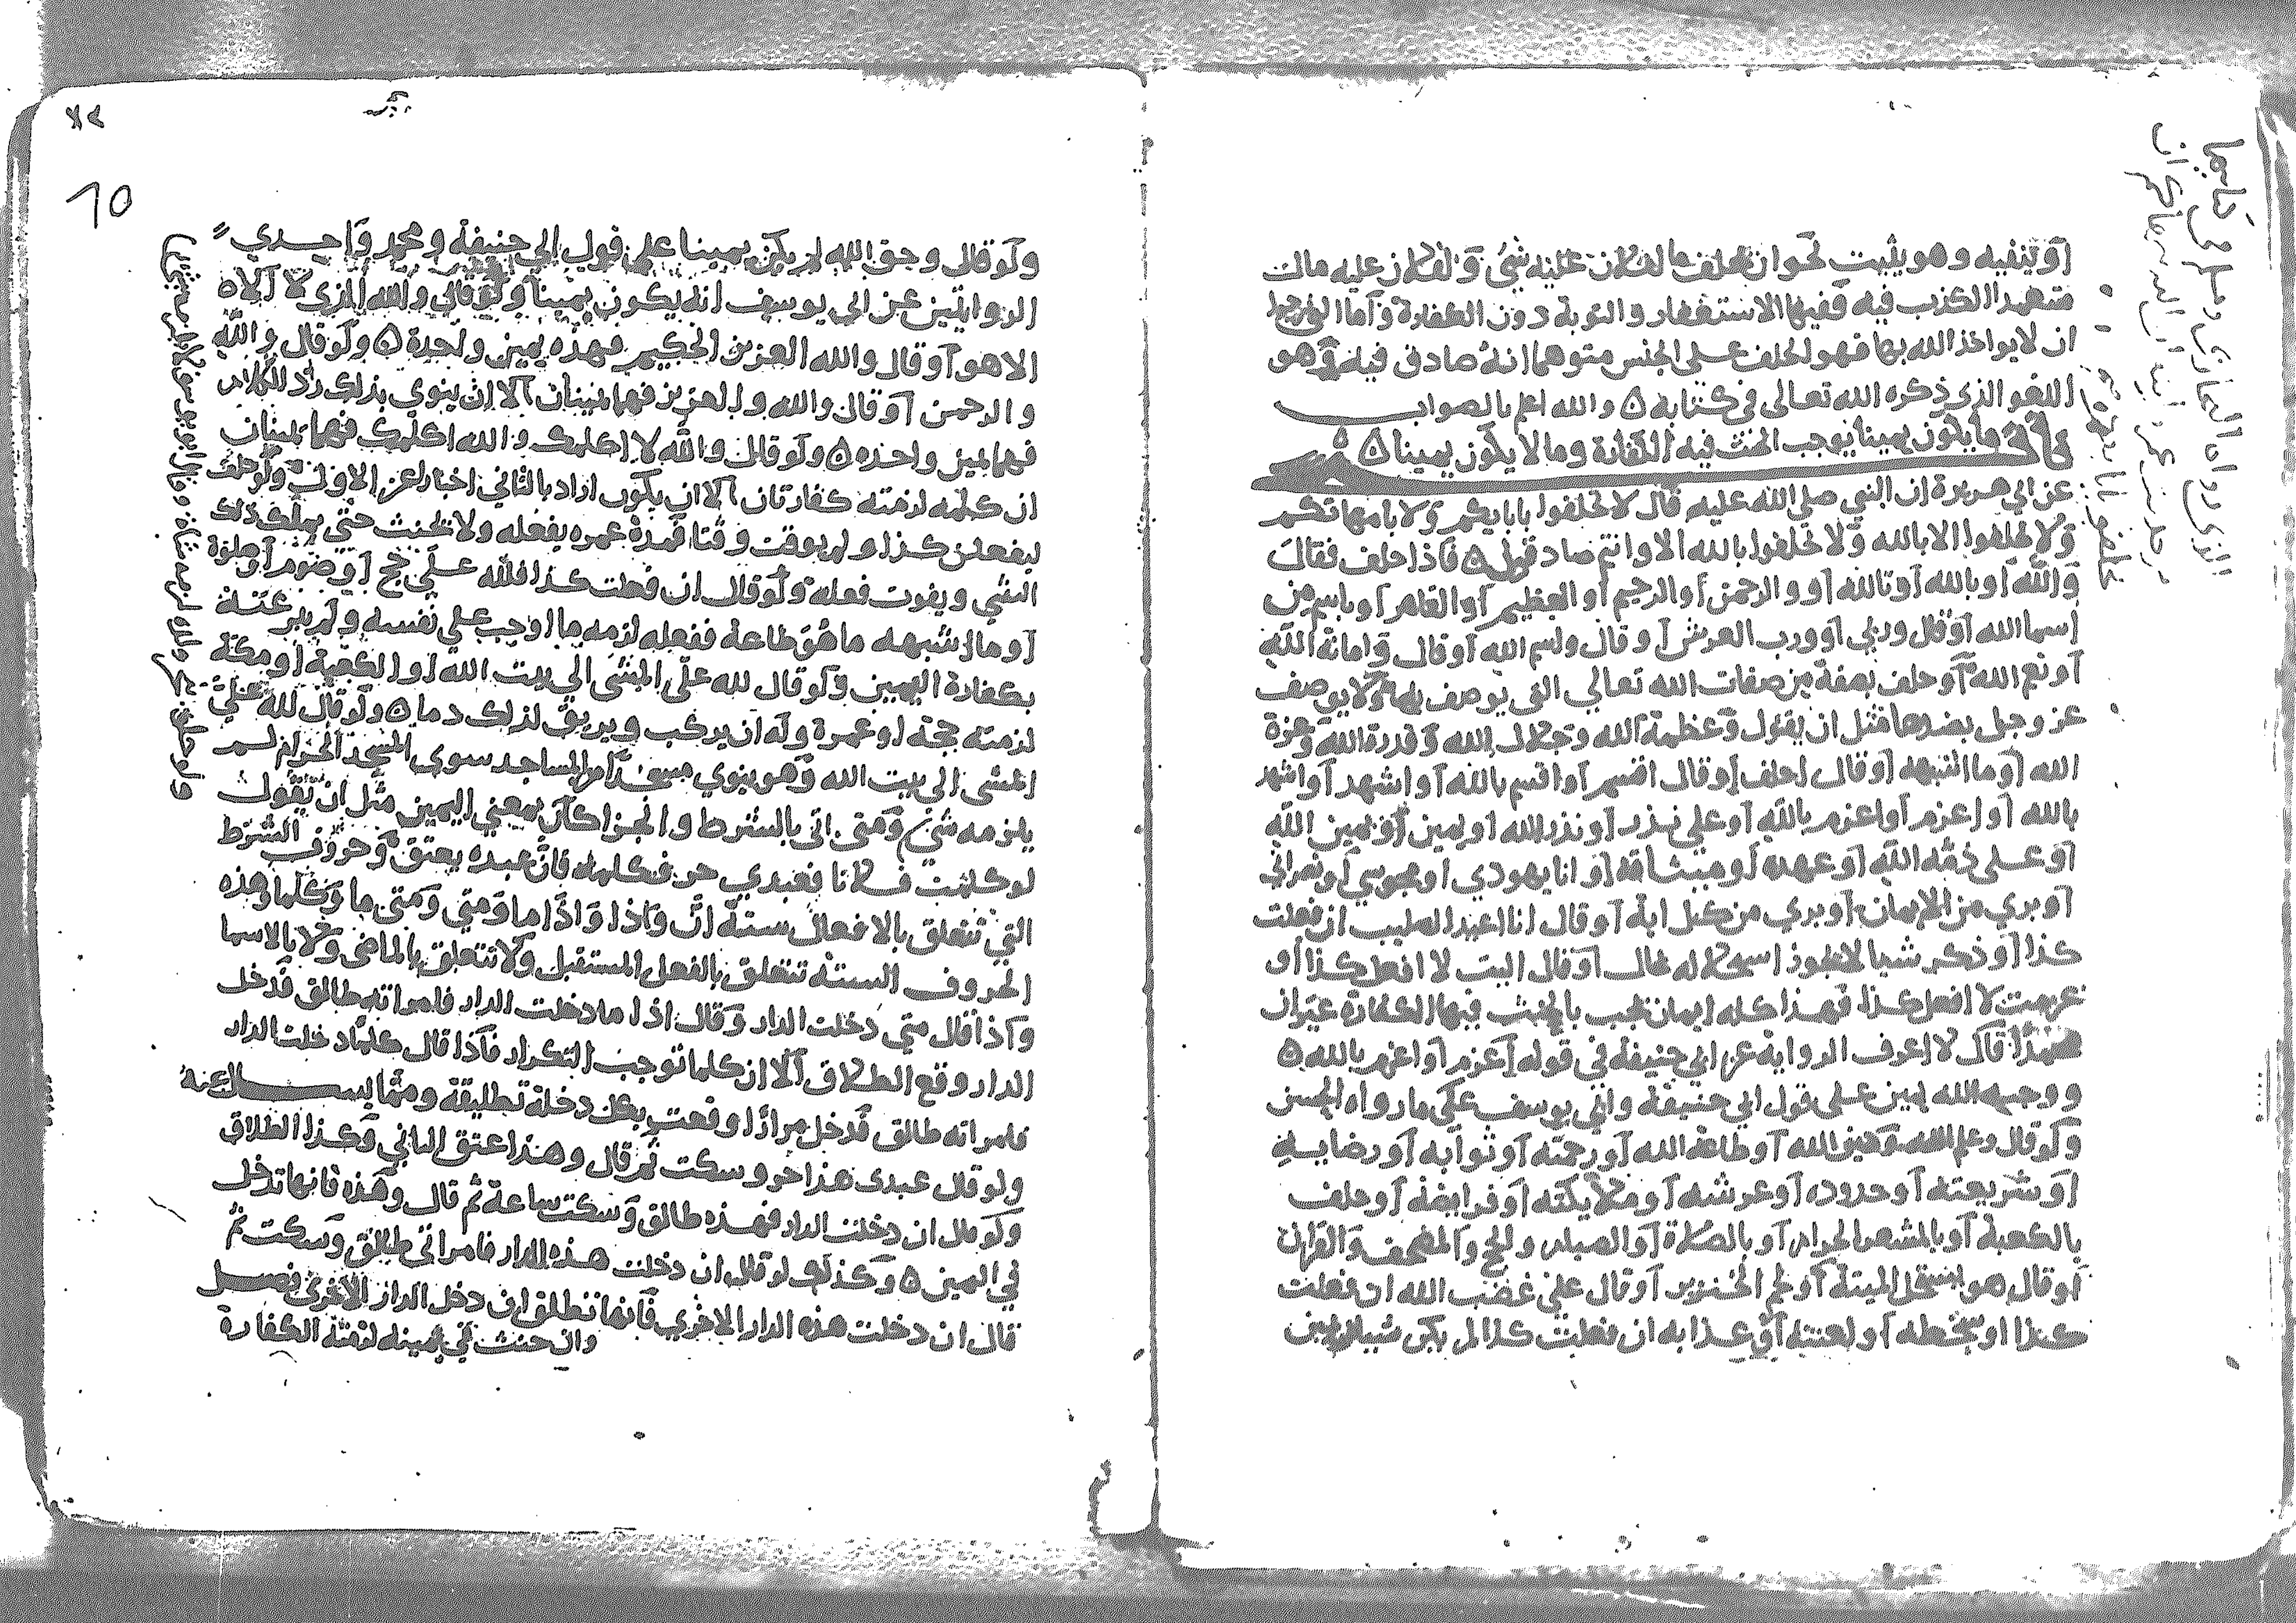 أو ينفيه وهو يثبت نحو ان يحلف ما لفلان عليه شئ ولفلان عليه مال
متعمدا الكذب فيه ففيها الاستغفار والتوبة دون الكفارة وأما التي نرجوا
ان لا يواخذ الله بها فهو الحلف على الجنس متوهما انه صادق فيه وهو
اللغو الذي ذكره الله تعالى في كتابه ه والله اعلم بالصواب
باب ما يكون يمينا يوجب الحنث فيه الكفارة وما لا يكون يمينا ه
عن ابي هريرة ان النبي صلى الله عليه قال لا تحلفوا بابايكم ولا بامهاتكم
ولا تحلفوا الا بالله ولا تحلفوا بالله الا وانتم صادقون ه فاذا حلف فقال
والله أو بالله أو تالله أو والرحمن أو الرحيم أو العظيم أو القاهر أو باسم من
أسما الله أو قال وربي أو ورب العرش أو قال واسم الله أو قال وأمانة الله
أو حلف بصفة من صفات الله تعالى التي يوصف بها ولا يوصف
عز وجل بضدها مثل ان يقول وعظمة الله وجلال الله وقدرة الله وعزة
الله أو ما اشبهه أو قال احلف أو قال اقسم أو اقسم بالله أو اشهد أو اشهد
بالله أو اعزم أو اعزم بالله أو علي نذر أو نذر الله أو يمين أو يمين الله
أو على ذمة الله أو عهده أو ميثاقه أو انا يهودي أو مجوسي أو نصراني
أو بري من الايمان أو بري من كل اية أو قال انا اعبد الصليب ان فعلت
كذا أو ذكر شيا لا يجوز استحلاله بحال أو قال اليت لا افعل كذا أو
عزمت لا افعل كذا فهذا كله ايمان تجب بالحنث فيها الكفارة غير ان
محمدا قال لا اعرف الرواية عن ابي حنيفة في قوله اعزم أو اعزم بالله ه
ووجه الله يمين على قول ابي حنيفة وابي يوسف على ما رواه الحسن
ولو قال وعلم الله أو طاعة الله أو رحمته أو ثوابه أو رضايه
أو شريعته أو حدوده أو عرشه أو ملايكته أو فرايضه أو حلف
بالكعبة أو بالمشعر الحرام أو بالصلاة أو الصيام والحج والمصحف والقرآن
أو قال هو يستحل الميتة أو لحم الخنزير أو قال علي غضب الله ان فعلت
كذا أو سخطه أو لعنته أو عذابه ان فعلت كذا لم يكن شي من
١٥
ولو قال وحق الله لم يكن يمينا على قول ابي حنيفة ومحمد واحدي
الروايتين عن ابي يوسف انه يكون يمينا ولو قال والله الذي لا اله
الا هو أو قال والله العزيز الحكيم فهذه يمين واحدة ه ولو قال والله
والرحمن أو قال والله والعزيز فهما يمينان الا ان ينوي بذلك رد الكلام
فهما يمين واحده ه ولو قال والله لا اكلمك والله اكلمك فهما يمينان
ان كلمه لزمته كفارتان الا ان يكون اراد بالثاني اخبارا عن الاول ولو حلف
ليفعلن كذا ولم يوقت وقتا فمدة عمره يفعله ولا يحنث حتى يهلك ذلك
الشي ويفوت فعله ولو قال ان فعلت كذا فلله علي حج أو صوم أو صلوة
أو ما اشبهه ما هو طاعة ففعله لزمه ما اوجب على نفسه ولم يبر عنه
بكفارة اليمين ولو قال لله علي المشى الى بيت الله أو الكعبة أو مكة
لزمته حجة أو عمرة وله ان يركب ويريق لذلك دما ه ولو قال لله علي
المشى الى بيت الله وهو ينوي مسجدا من المساجد سوى المسجد الحرام لم
يلزمه شئ ومتى اتى بالشرط والجزا كان بمعني اليمين مثل ان يقول
لو كلمت فلانا فعبدي حر فكلمه فان عبده يعتق وحروف الشرط
التي تتعلق بالافعال ستة ان واذا واذا ما ومتى ومتى ما وكلما وهذه
الحروف الستة تتعلق بالفعل المستقبل ولا تتعلق بالماضي ولا بالاسما
واذا قال متى دخلت الدار وقال اذا ما دخلت الدار فامراته طالق فدخل
الدار وقع الطلاق الا ان كلما توجب التكرار فاذا قال كلما دخلت الدار
فامراته طالق فدخل مرارا وقعت بكل دخلة تطليقة ومما يسال عنه
ولو قال عبدى هذا حر وسكت ثم قال وهذا عتق الثاني وكذا الطلاق
ولو قال ان دخلت الدار فهذه طالق وسكت ساعة ثم قال وهذه فانها تدخل
في اليمين ه وكذلك لو قال ان دخلت هذه الدار فامراتي طالق وسكت ثم
قال ان دخلت هذه الدار الاخري فانها تطلق ان دخل الدار الاخرى فصل
وان حنث في يمينه لزمته الكفارة